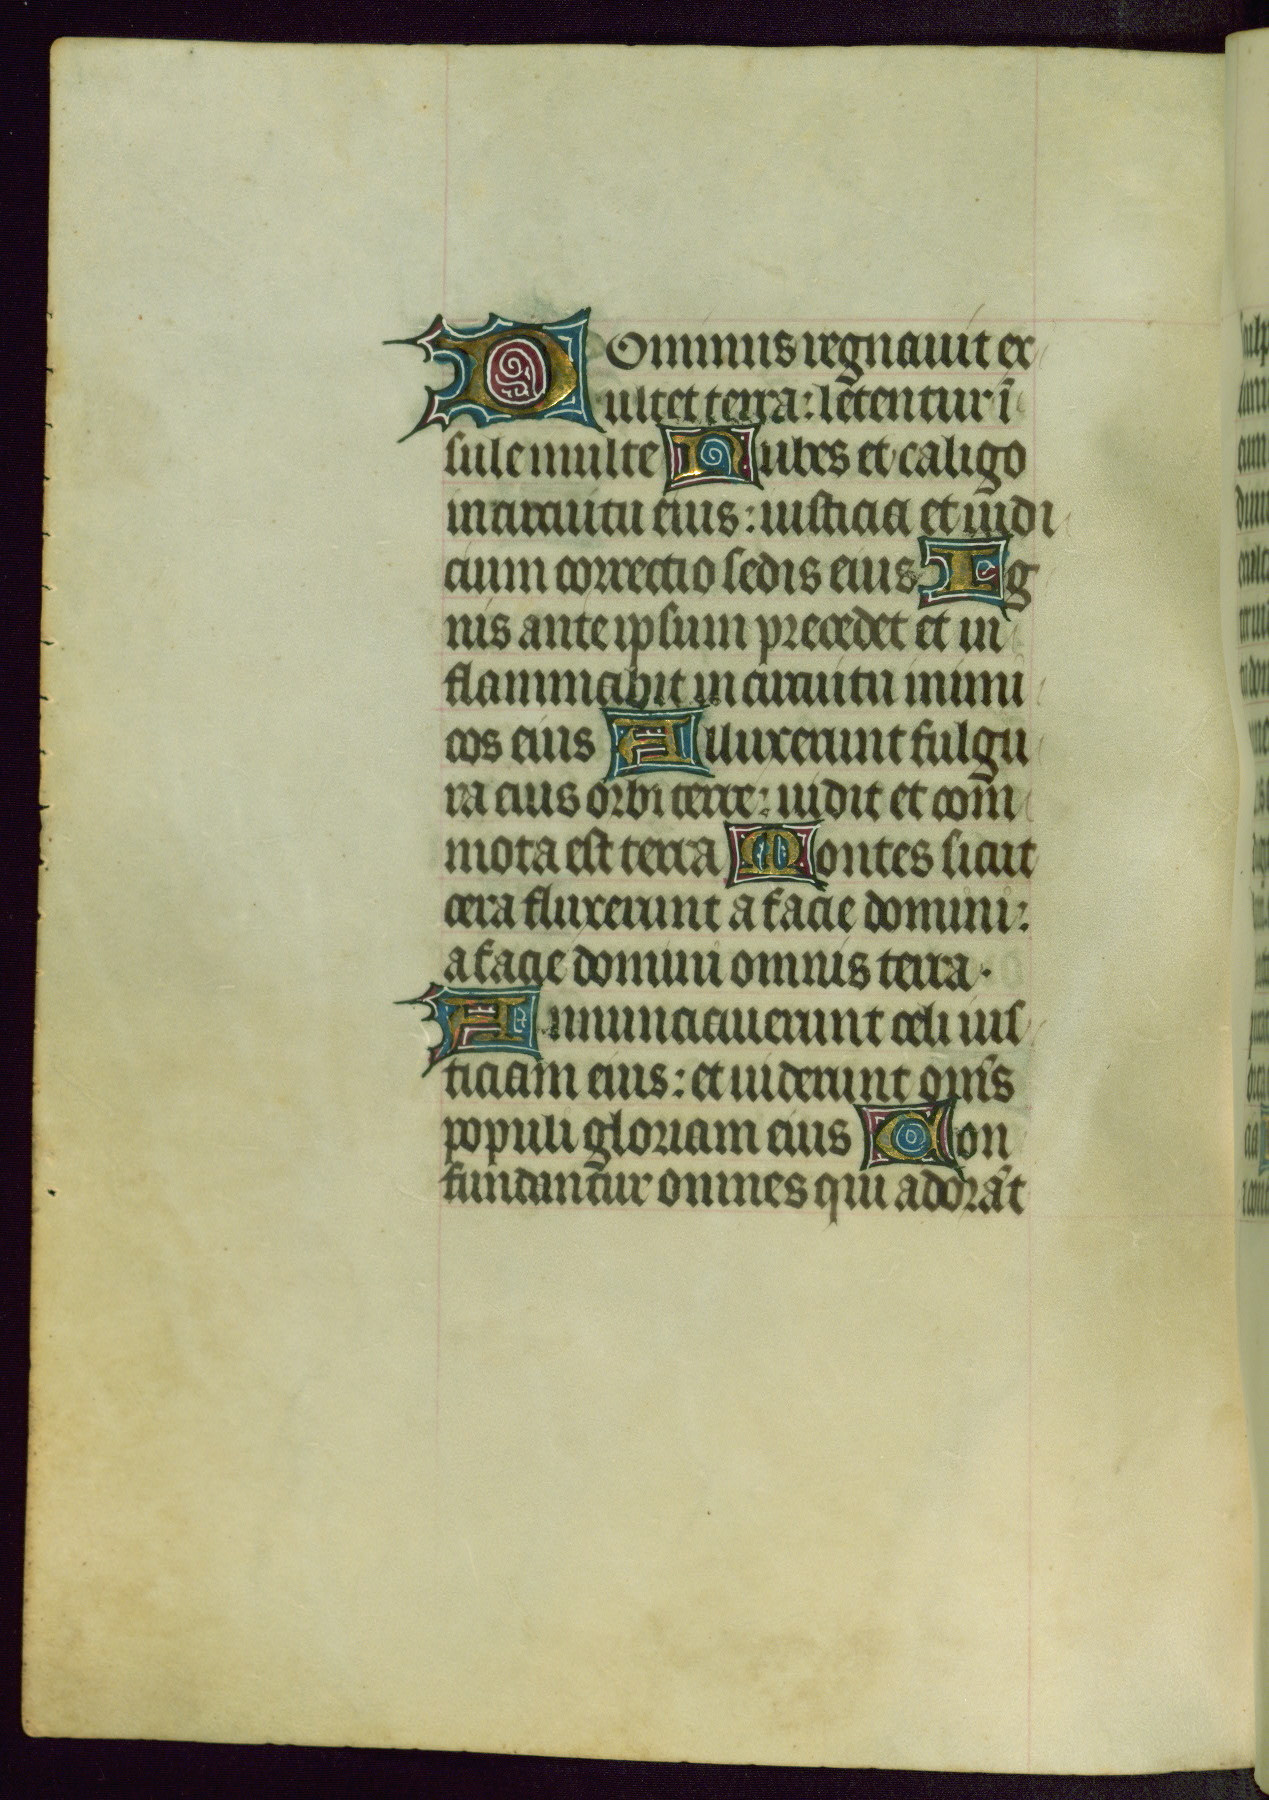 Dominus regnauit ex
ultet terra: letentur ī
sule multe Nubes et caligo
in circuitu eius: iusticia et iudi
cium correctio sedis eius Ig
nis ante ipsum precedet et in
flammabit in circuitu inimi
cos eius Alluxerunt fulgu
ra eius orbi terre: uidit et com̄
mota est terra Montes sicut
cera fluxerunt a facie domini:
a facie domini omnis terra.
Annunciauerunt celi ius
ticiam eius: et uiderunt om̄s
populi gloriam eius Con
fundantur omnes qui adorāt